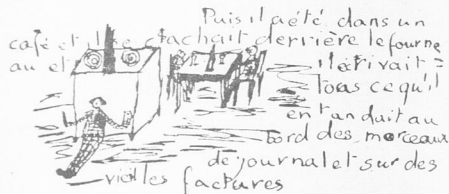 Puis il a été dans un
café et il se cachait derrière le fourne
au et il écrivait
tous ce qu'il
entanduit au
bord des morceaux
de journal et sur des
vieilles factures